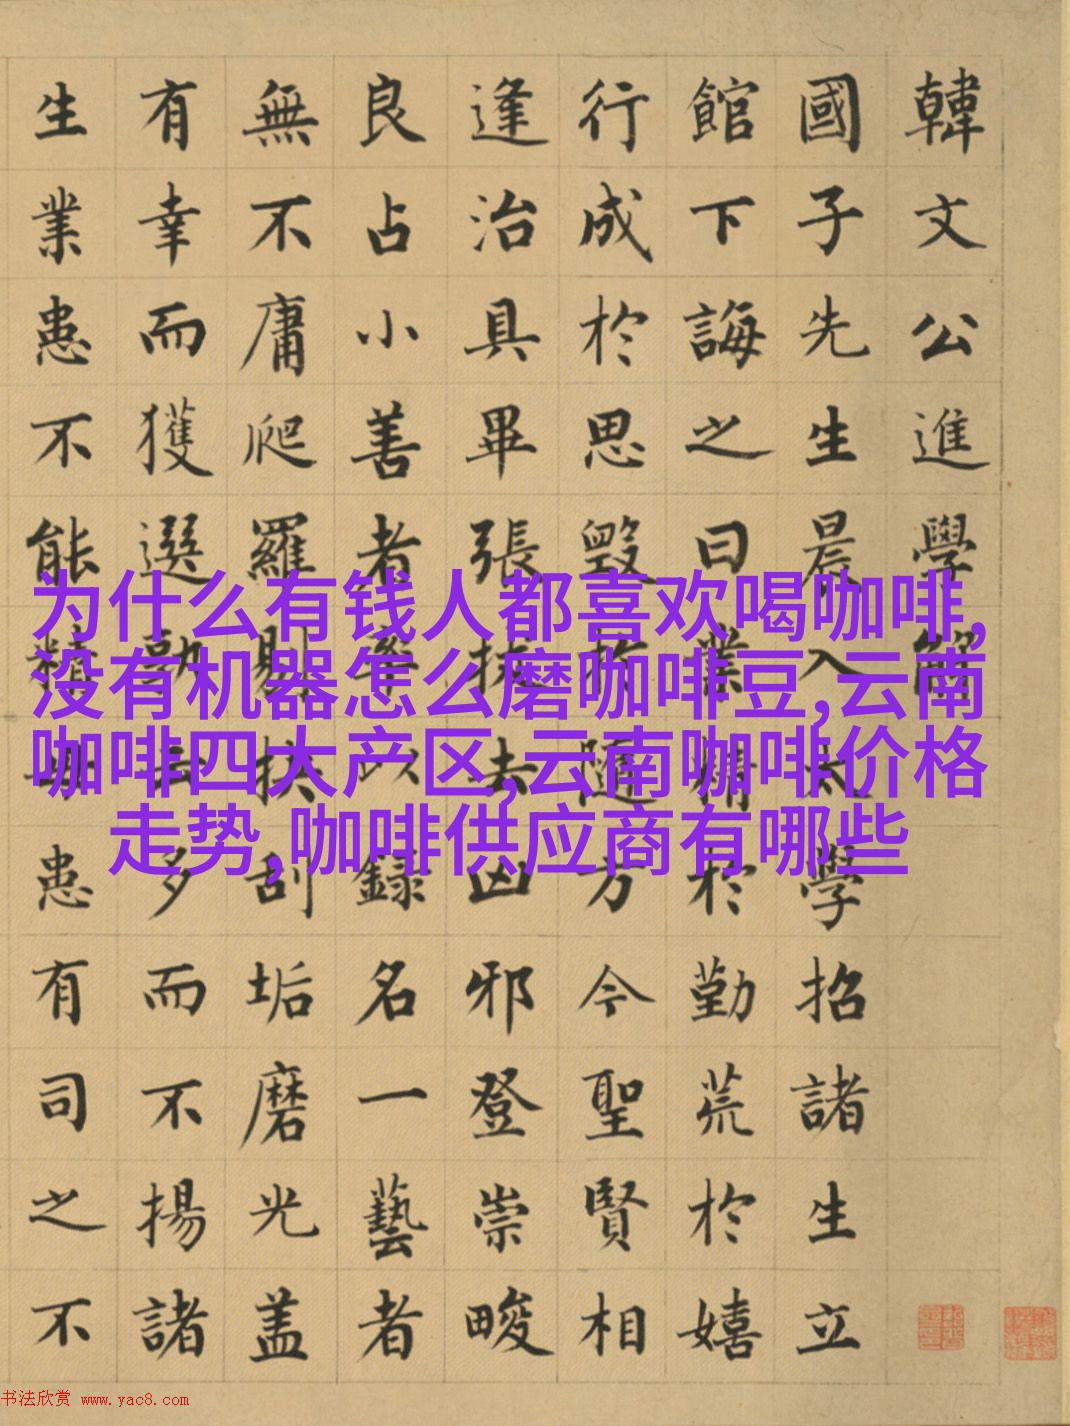 韓文公進學解
國子先生晨入太學招諸生立
館下誨之曰業精於勤荒於嬉
行成於思毀於隨方今聖賢相
逢治具畢張拔去凶邪登崇畯
良占小善者率以録名一藝者
無不庸爬羅剔抉刮垢磨光盖
有幸而獲選孰云多而不揚諸
生業患不能精毋患有司之不
为什么有钱人都喜欢喝咖啡,
没有机器怎么磨咖啡豆,云南
咖啡四大产区,云南咖啡价格
走势,咖啡供应商有哪些
书法欣赏 www.yac8.com